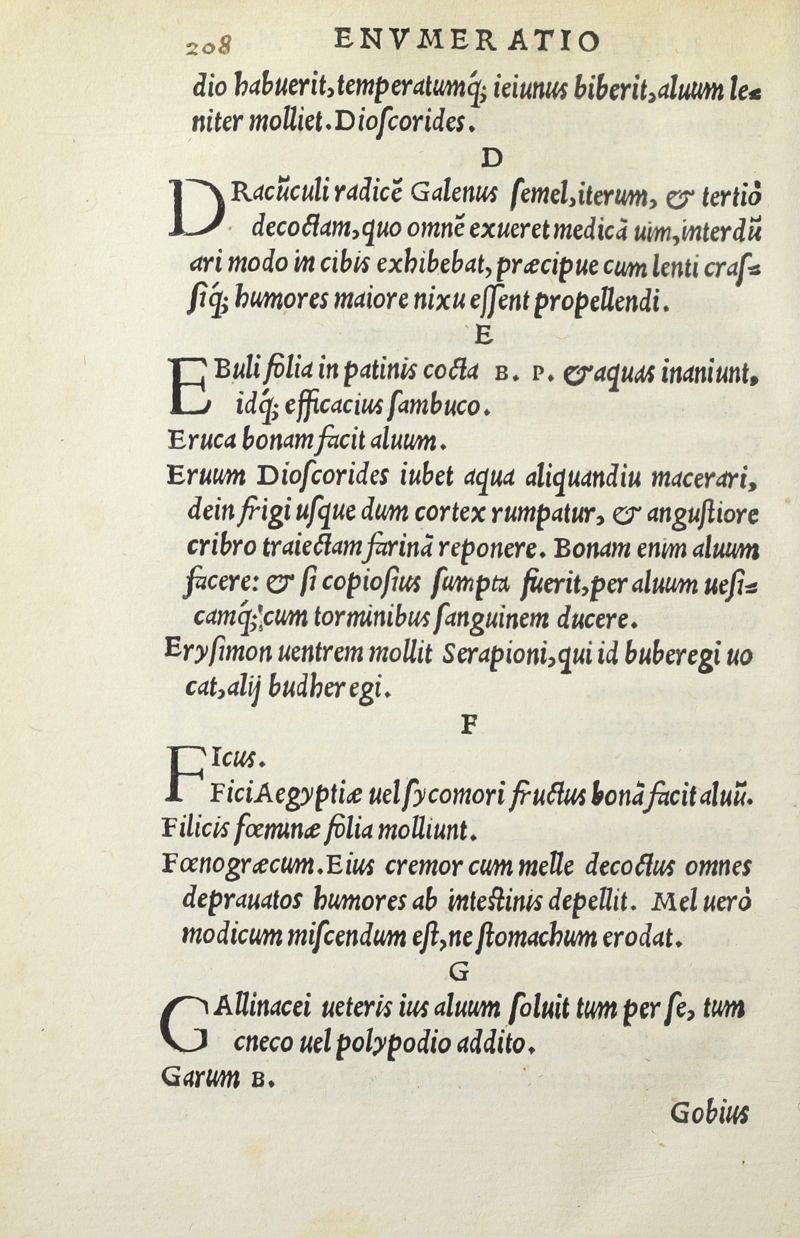 208 ENVMERATIO
dio habuerit, temperatumq́; ieiunus biberit, aluum le-
niter molliet. Dioſcorides.
D
DRacũculi radicẽ Galenus ſemel, iterum, & tertiò
decoctam, quo omnẽ exueret medicã uim, interdũ
ari modo in cibis exhibebat, præcipue cum lenti craſ-
ſiq́; humores maiore nixu eſſent propellendi.
E
EBuli folia in patinis cocta B. P. & aquas inaniunt,
idq́; efficacius ſambuco.
Eruca bonam facit aluum.
Eruum Dioſcorides iubet aqua aliquandiu macerari,
dein frigi uſque dum cortex rumpatur, & anguſtiore
cribro traiectam farinã reponere. Bonam enim aluum
facere: & ſi copioſius ſumpta fuerit, per aluum ueſi-
camq́; cum torminibus ſanguinem ducere.
Eryſimon uentrem mollit Serapioni, qui id buberegi uo
cat, alij budheregi.
F
FIcus.
Fici Aegyptiæ uel ſycomori fructus bonã facit aluũ.
Filicis fœminæ folia molliunt.
Fœnogræcum. Eius cremor cum melle decoctus omnes
deprauatos humores ab inteſtinis depellit. Mel uerò
modicum miſcendum eſt, ne ſtomachum erodat.
G
GAllinacei ueteris ius aluum ſoluit tum per ſe, tum
cneco uel polypodio addito.
Garum B.
Gobius